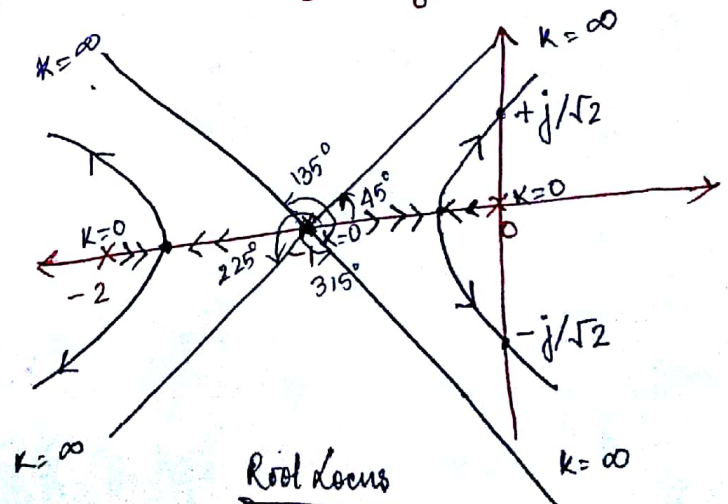 K=∞
K=∞
+j/√2
135°
45°
K=0
K=0
K=0
0
-2
225°
-1
315°
-j/√2
K=∞
K=∞
Root Locus